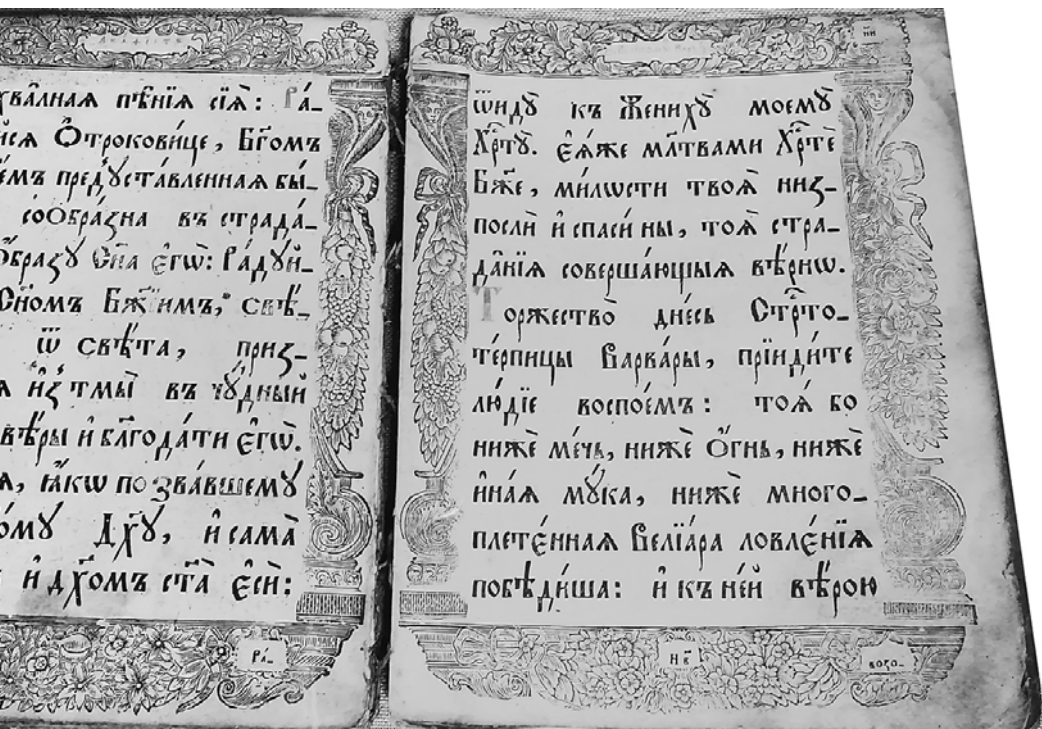 Акафистъ
хвалная пѣнїѧ сїѧ: Ра́-
йсѧ Ѻ҆трокови́це, Бг҃омъ
е́мъ пред̾ꙋста́вленнаѧ бы-
соѻбра́зна въ страда́-
ѻ҆́бразꙋ Сн҃а є҆гѡ̀: Ра́дꙋй-
Сн҃омъ Бж҃їимъ, свѣ́-
ѿ свѣ́та, приз-
ѧ и҆з̾ тмы̀ въ чꙋ́дный
вѣ́ры и҆ блг҃ода́ти є҆гѡ̀.
ѧ, ꙗ҆́кѡ позва́вшемꙋ
о́мꙋ Дх҃ꙋ, и҆ сама̀
и҆ дх҃омъ ст҃а̀ є҆сѝ:
Ра́-
ни
ѿидꙋ̀ къ Женихꙋ̀ моемꙋ̀
Хрⷭ҇тꙋ̀. є҆ѧ́же мл҃твами Хрⷭ҇тѐ
Бж҃е, ми́лѡсти твоѧ̀ низ-
послѝ и҆ спаси́ ны, тоѧ̀ стра-
да̑нїѧ соверша́ющыѧ вѣ́рнѡ.
Торжество̀ дне́сь Стрⷭ҇то-
те́рпицы Варва́ры, прїиди́те
лю́дїе воспое́мъ: тоѧ́ бо
нижѐ ме́чь, нижѐ Ѻ҆́гнь, нижѐ
и҆на́ѧ мꙋ́ка, нижѐ много-
плете́ннаѧ Велїа́ра ловлє́нїѧ
побѣди́ша: и҆ къ не́й вѣ́рою
нв҃
возо-